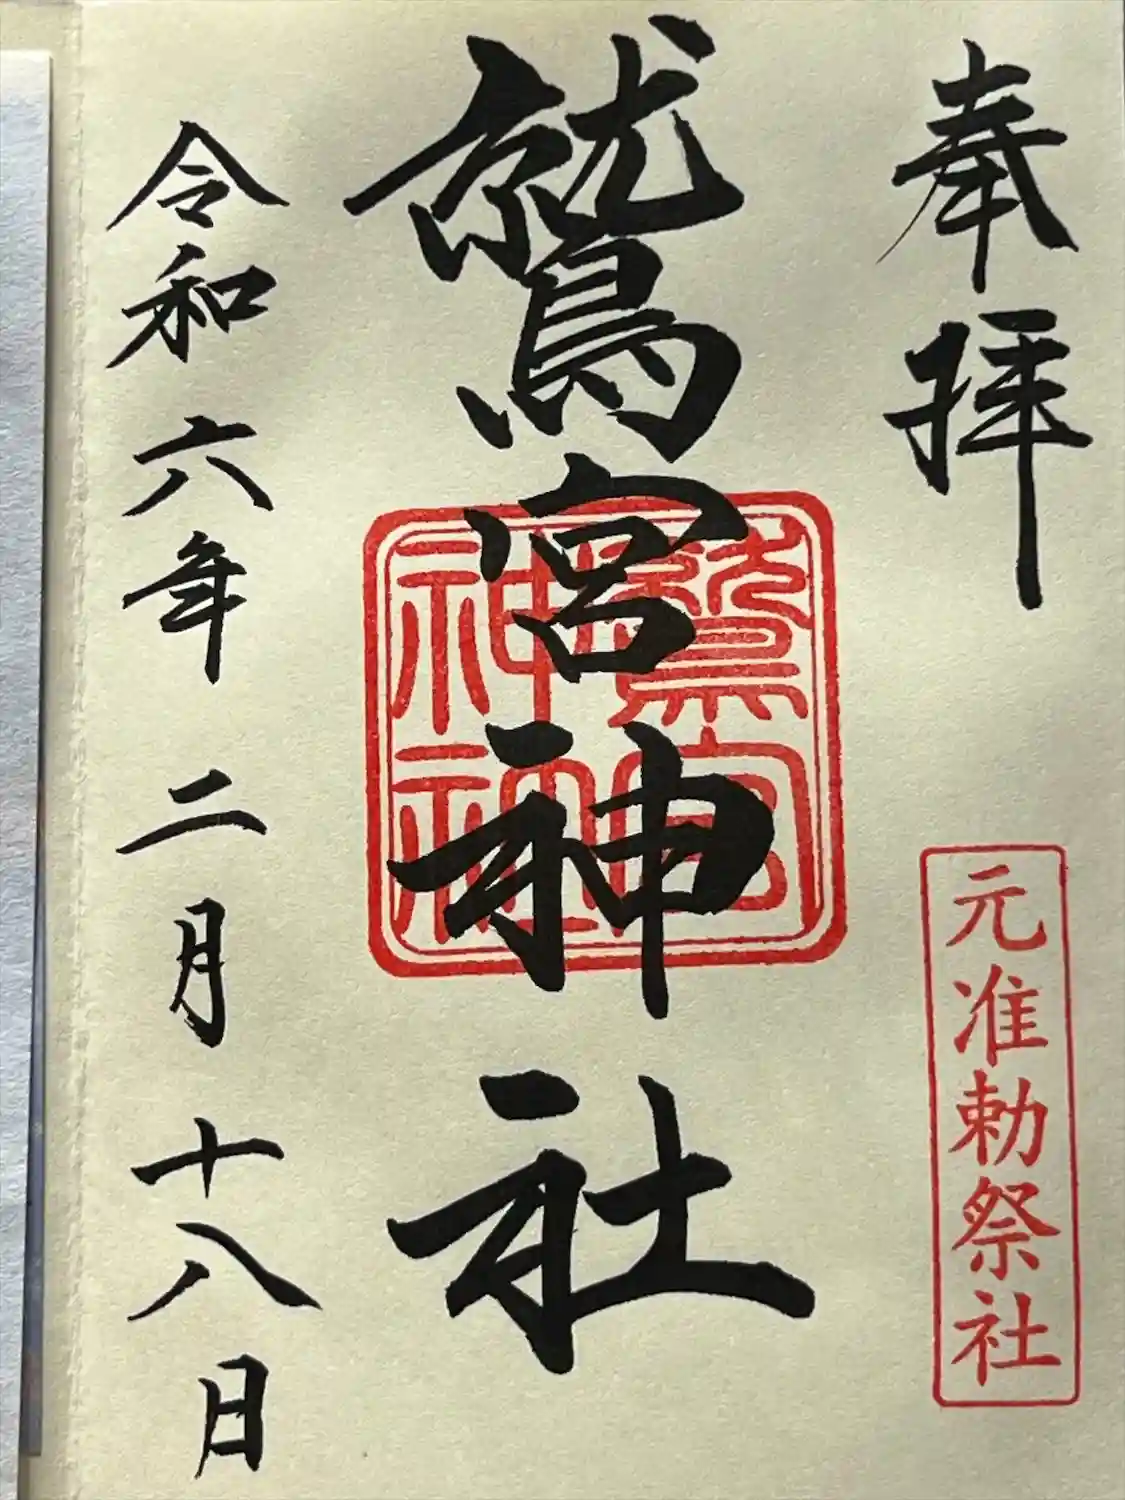 奉拝
元准勅祭社
鷲宮神社
鷲宮
神社
令和六年二月十八日